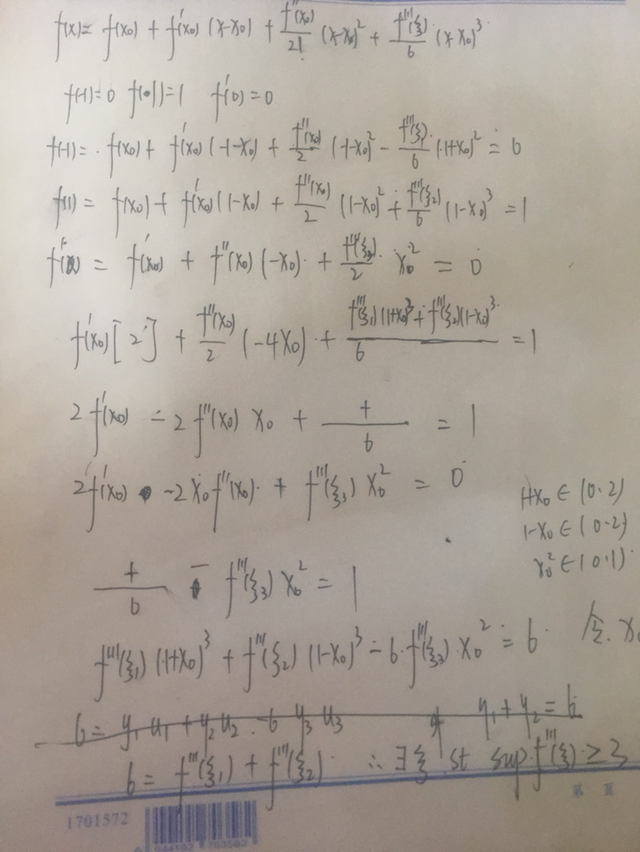 f(x) = f(x₀) + f'(x₀)(x-x₀) + f''(x₀)/2! (x-x₀)² + f'''(ξ)/6 (x-x₀)³
f(-1)=0 f(1)=1 f'(0)=0
f(-1) = f(x₀) + f'(x₀)(-1-x₀) + f''(x₀)/2 (-1-x₀)² - f'''(ξ₁)/6 (1+x₀)² = 0
f(1) = f(x₀) + f'(x₀)(1-x₀) + f''(x₀)/2 (1-x₀)² + f'''(ξ₂)/6 (1-x₀)³ = 1
f'(0) = f'(x₀) + f''(x₀)(-x₀) + f'''(ξ₃)/2 x₀² = 0
f'(x₀)[2] + f''(x₀)/2 (-4x₀) + (f'''(ξ₁)(1+x₀)³ + f'''(ξ₂)(1-x₀)³)/6 = 1
2f'(x₀) - 2f''(x₀)x₀ + +/6 = 1
2f'(x₀) - 2x₀f''(x₀) + f'''(ξ₃)x₀² = 0
1+x₀ ∈ (0.2)
1-x₀ ∈ (0.2)
x₀² ∈ (0.1)
+/6 - f'''(ξ₃)x₀² = 1
f'''(ξ₁)(1+x₀)³ + f'''(ξ₂)(1-x₀)³ - 6·f'''(ξ₃)·x₀² = 6 令 x₀
6 = y₁u₁ + y₂u₂ - 6 y₃u₃ y₁+y₂ = 6
6 = f'''(ξ₁) + f'''(ξ₂) ∴ ∃ξ st sup f'''(ξ) ≥ 3
第 页
1701572